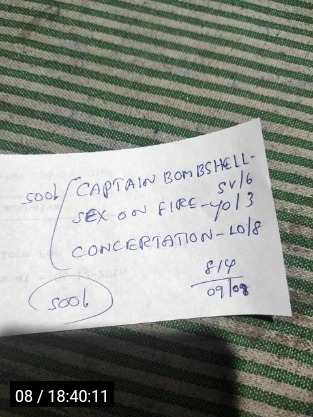 500b CAPTAIN BOMBSHELL-
SV/6
SEX ON FIRE-YO/3
CONCERTATION-LO/8
500b
8/4
09/08
08 / 18:40:11